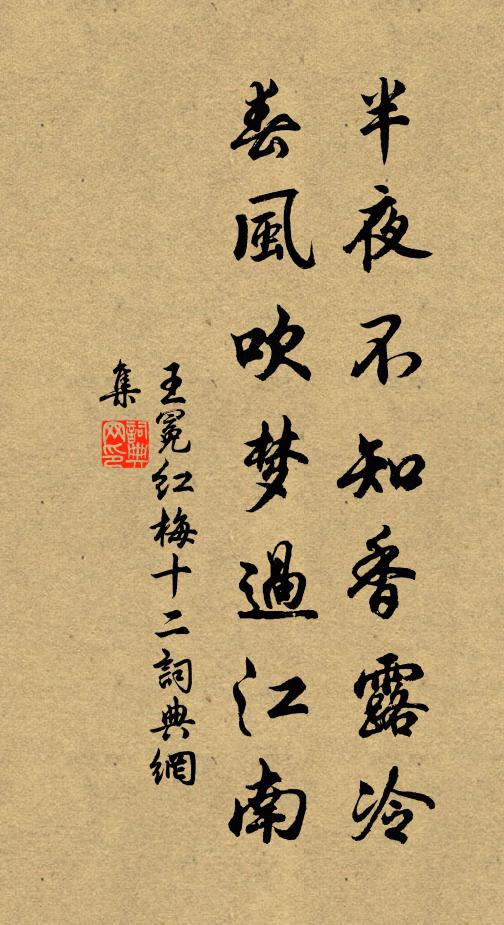 半夜不知香露冷
春風吹梦過江南
王冕红梅十二詞典網
集
詞典網印